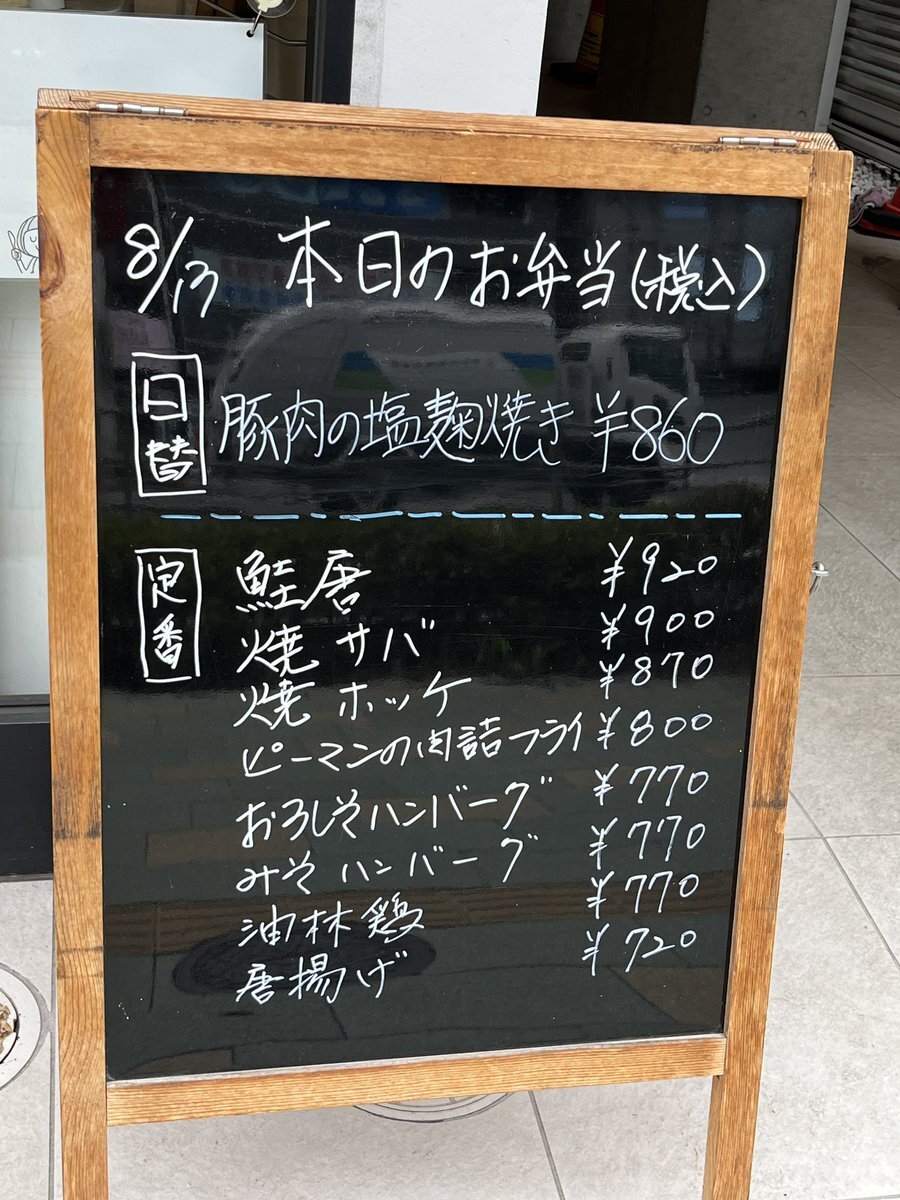 8/13 本日のお弁当(税込)
日替 豚肉の塩麹焼き ¥860
定番 鮭唐 ¥920
焼サバ ¥900
焼ホッケ ¥870
ピーマンの肉詰フライ ¥800
おろしそハンバーグ ¥770
みそハンバーグ ¥770
油林鶏 ¥770
唐揚げ ¥720